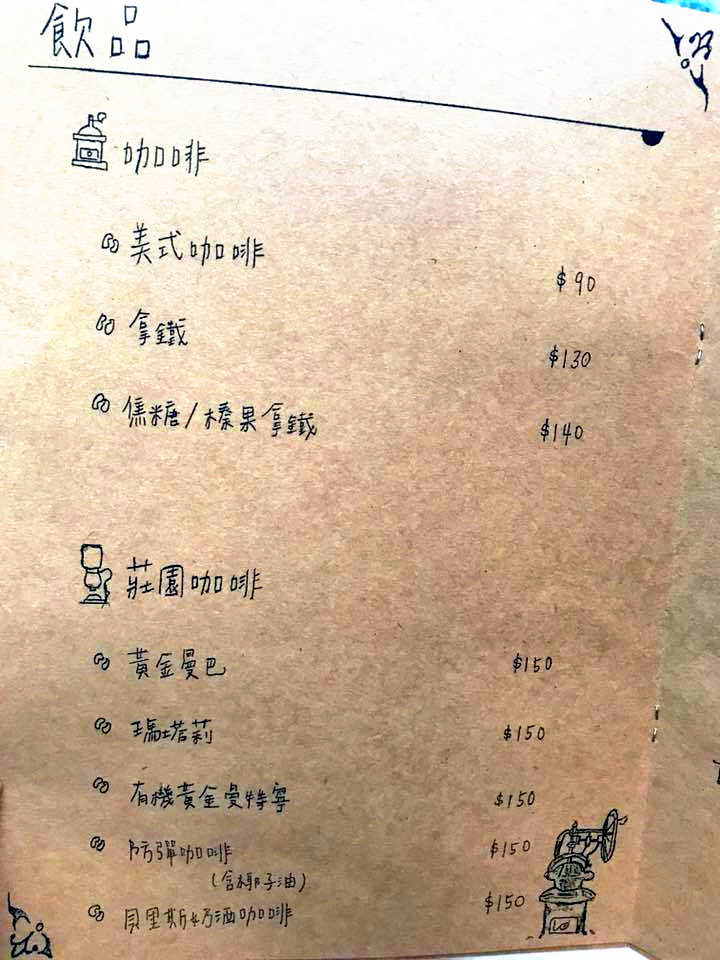 飲品
咖啡
美式咖啡 $90
拿鐵 $130
焦糖/榛果拿鐵 $140
莊園咖啡
黃金曼巴 $150
瑪塔莉 $150
有機黃金曼特寧 $150
防彈咖啡 $150
(含椰子油)
貝里斯奶酒咖啡 $150